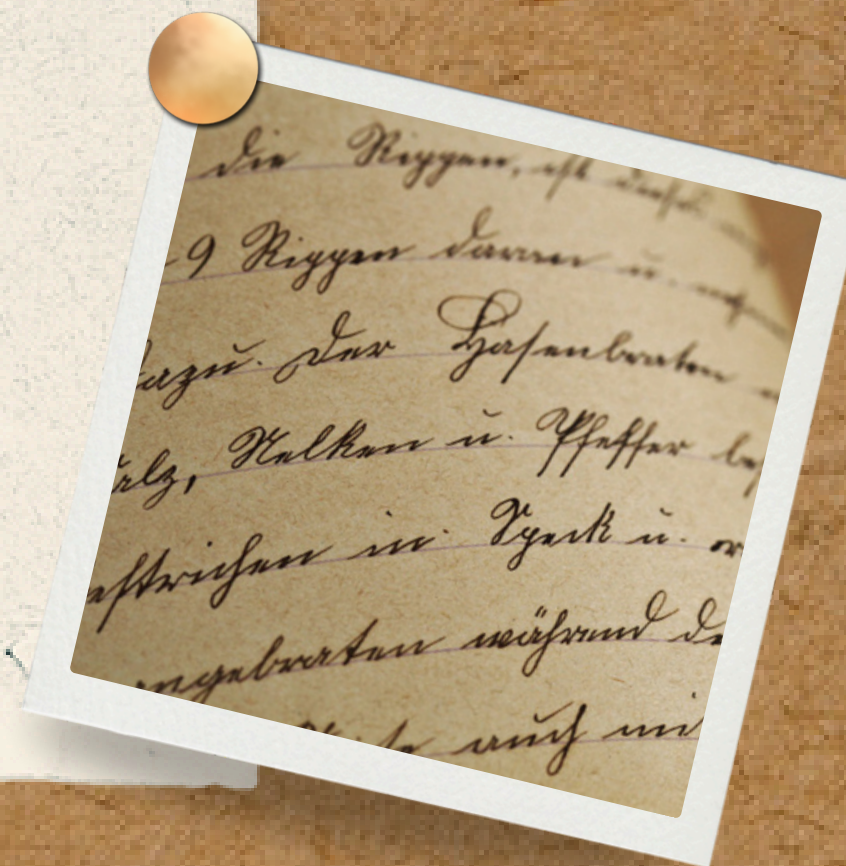 die Rippen, ist diese
9 Rippen daran u.
dazu. Der Hasenbraten
Salz, Nelken u. Pfeffer be
estrichen in Speck u. er
angebraten während de
auch mi